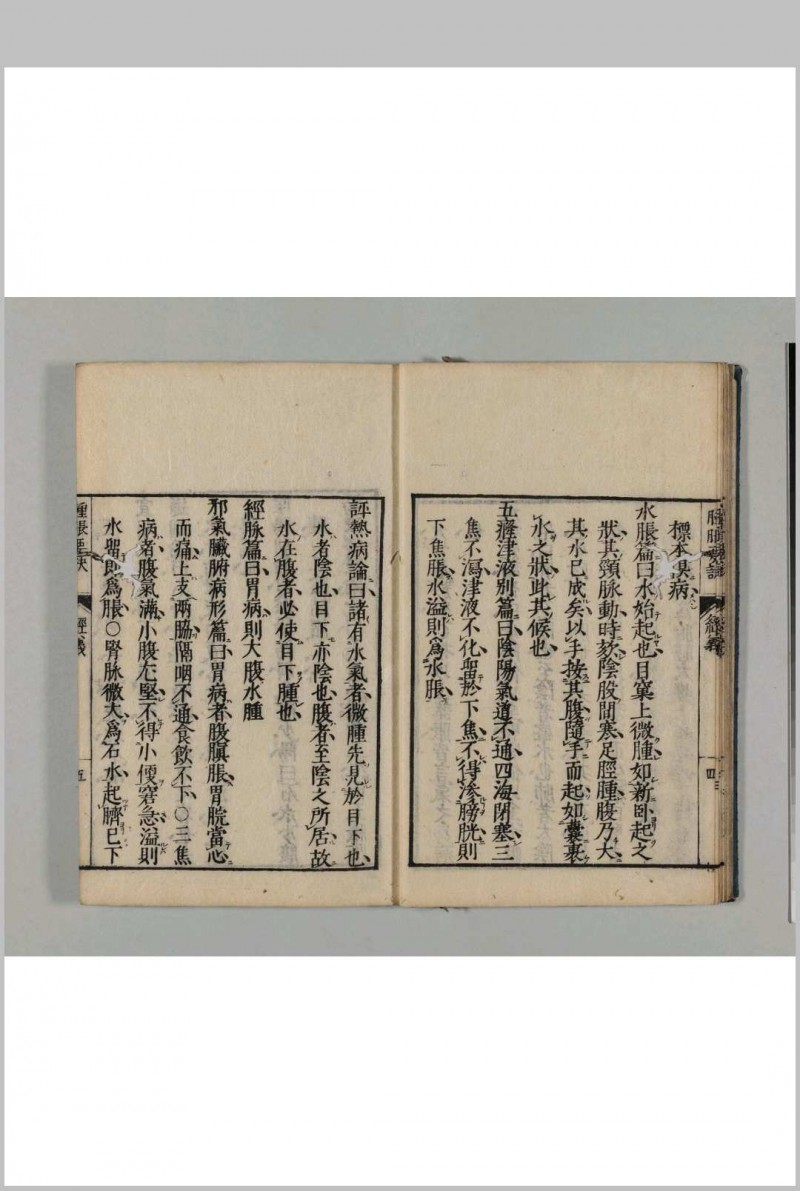 標本俱病
水脹篇曰水始起也目窠上微腫如新卧起之
狀其頸脉動時欬陰股間寒足脛腫腹乃大
其水已成矣以手按其腹隨手而起如囊裹
水之狀此其候也
五癃津液別篇曰陰陽氣道不通四海閉塞三
焦不瀉津液不化畱於下焦不得滲膀胱則
下焦脹水溢則爲水脹
四
評熱病論曰諸有水氣者微腫先見於目下也
水者陰也目下亦陰也腹者至陰之所居故
水在腹者必使目下腫也
經脉篇曰胃病則大腹水腫
邪氣臟腑病形篇曰胃病者腹䐜脹胃脘當心
而痛上支兩脇隔咽不通食飲不下○三焦
病者腹氣滿小腹尤堅不得小便窘急溢則
水畱即爲脹○腎脉微大爲石水起臍已下
經義
五